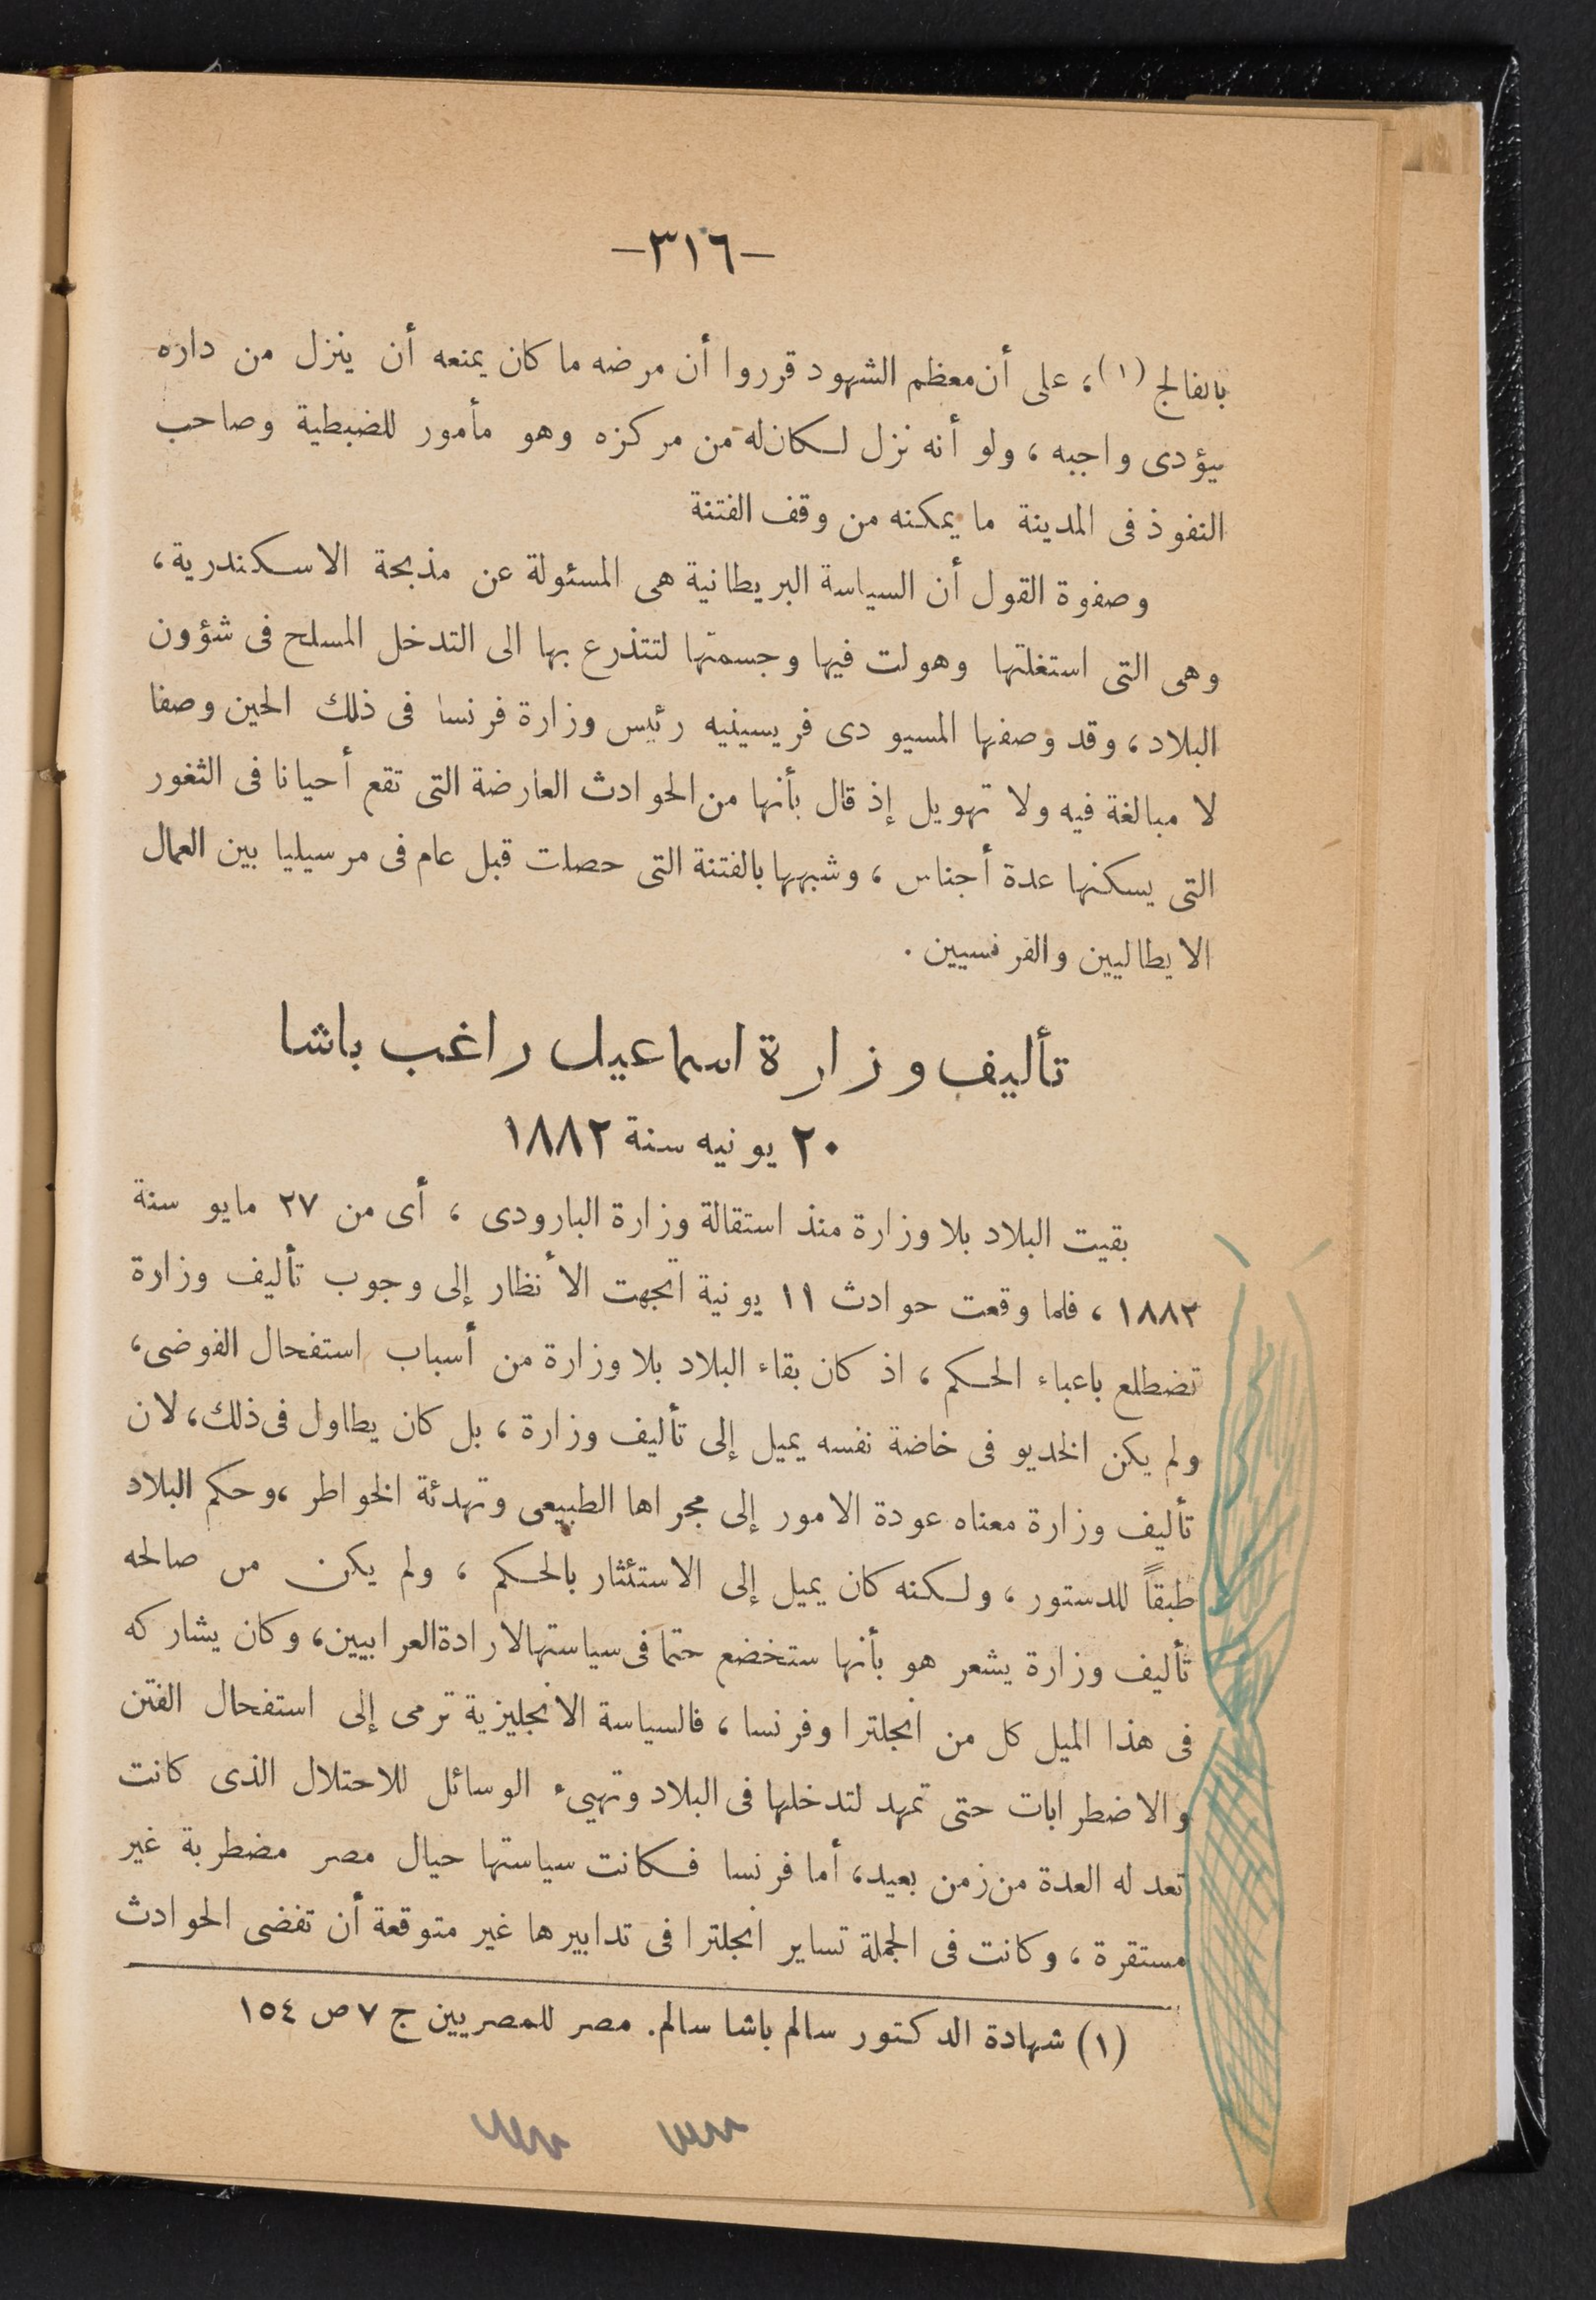 -٣١٦-
بالفالج (١)، على أن معظم الشهود قرروا أن مرضه ما كان يمنعه أن ينزل من داره
يؤدى واجبه ، ولو أنه نزل لكان له من مركزه وهو مأمور للضبطية وصاحب
النفوذ فى المدينة ما يمكنه من وقف الفتنة
وصفوة القول أن السياسة البريطانية هى المسئولة عن مذبحة الاسكندرية ،
وهى التى استغلتها وهولت فيها وجسمتها لتتذرع بها الى التدخل المسلح فى شؤون
البلاد ، وقد وصفها المسيو دى فريسينيه رئيس وزارة فرنسا فى ذلك الحين وصفا
لا مبالغة فيه ولا تهويل إذ قال بأنها من الحوادث العارضة التى تقع أحيانا فى الثغور
التى يسكنها عدة أجناس ، وشبهها بالفتنة التى حصلت قبل عام فى مرسيليا بين العمال
الايطاليين والفرنسيين .
تأليف وزارة اسماعيل راغب باشا
٢٠ يونيه سنة ١٨٨٢
بقيت البلاد بلا وزارة منذ استقالة وزارة البارودى ، أى من ٢٧ مايو سنة
١٨٨٢ ، فلما وقعت حوادث ١١ يونية اتجهت الأنظار إلى وجوب تأليف وزارة
تضطلع باعباء الحكم ، اذ كان بقاء البلاد بلا وزارة من أسباب استفحال الفوضى ،
ولم يكن الخديو فى خاضة نفسه يميل إلى تأليف وزارة ، بل كان يطاول فى ذلك ، لان
تأليف وزارة معناه عودة الامور إلى مجراها الطبيعى وتهدئة الخواطر ، وحكم البلاد
طبقاً للدستور ، ولكنه كان يميل إلى الاستئثار بالحكم ، ولم يكن من صالحه
تأليف وزارة يشعر هو بأنها ستخضع حتما فى سياستها لارادة العرابيين ، وكان يشاركه
فى هذا الميل كل من انجلترا وفرنسا ، فالسياسة الانجليزية ترمى إلى استفحال الفتن
والاضطرابات حتى تمهد لتدخلها فى البلاد وتهيىء الوسائل للاحتلال الذى كانت
تعد له العدة من زمن بعيد ، أما فرنسا فكانت سياستها حيال مصر مضطربة غير
مستقرة ، وكانت فى الجملة تساير انجلترا فى تدابيرها غير متوقعة أن تفضى الحوادث
(١) شهادة الدكتور سالم باشا سالم. مصر للمصريين ج ٧ ص ١٥٤